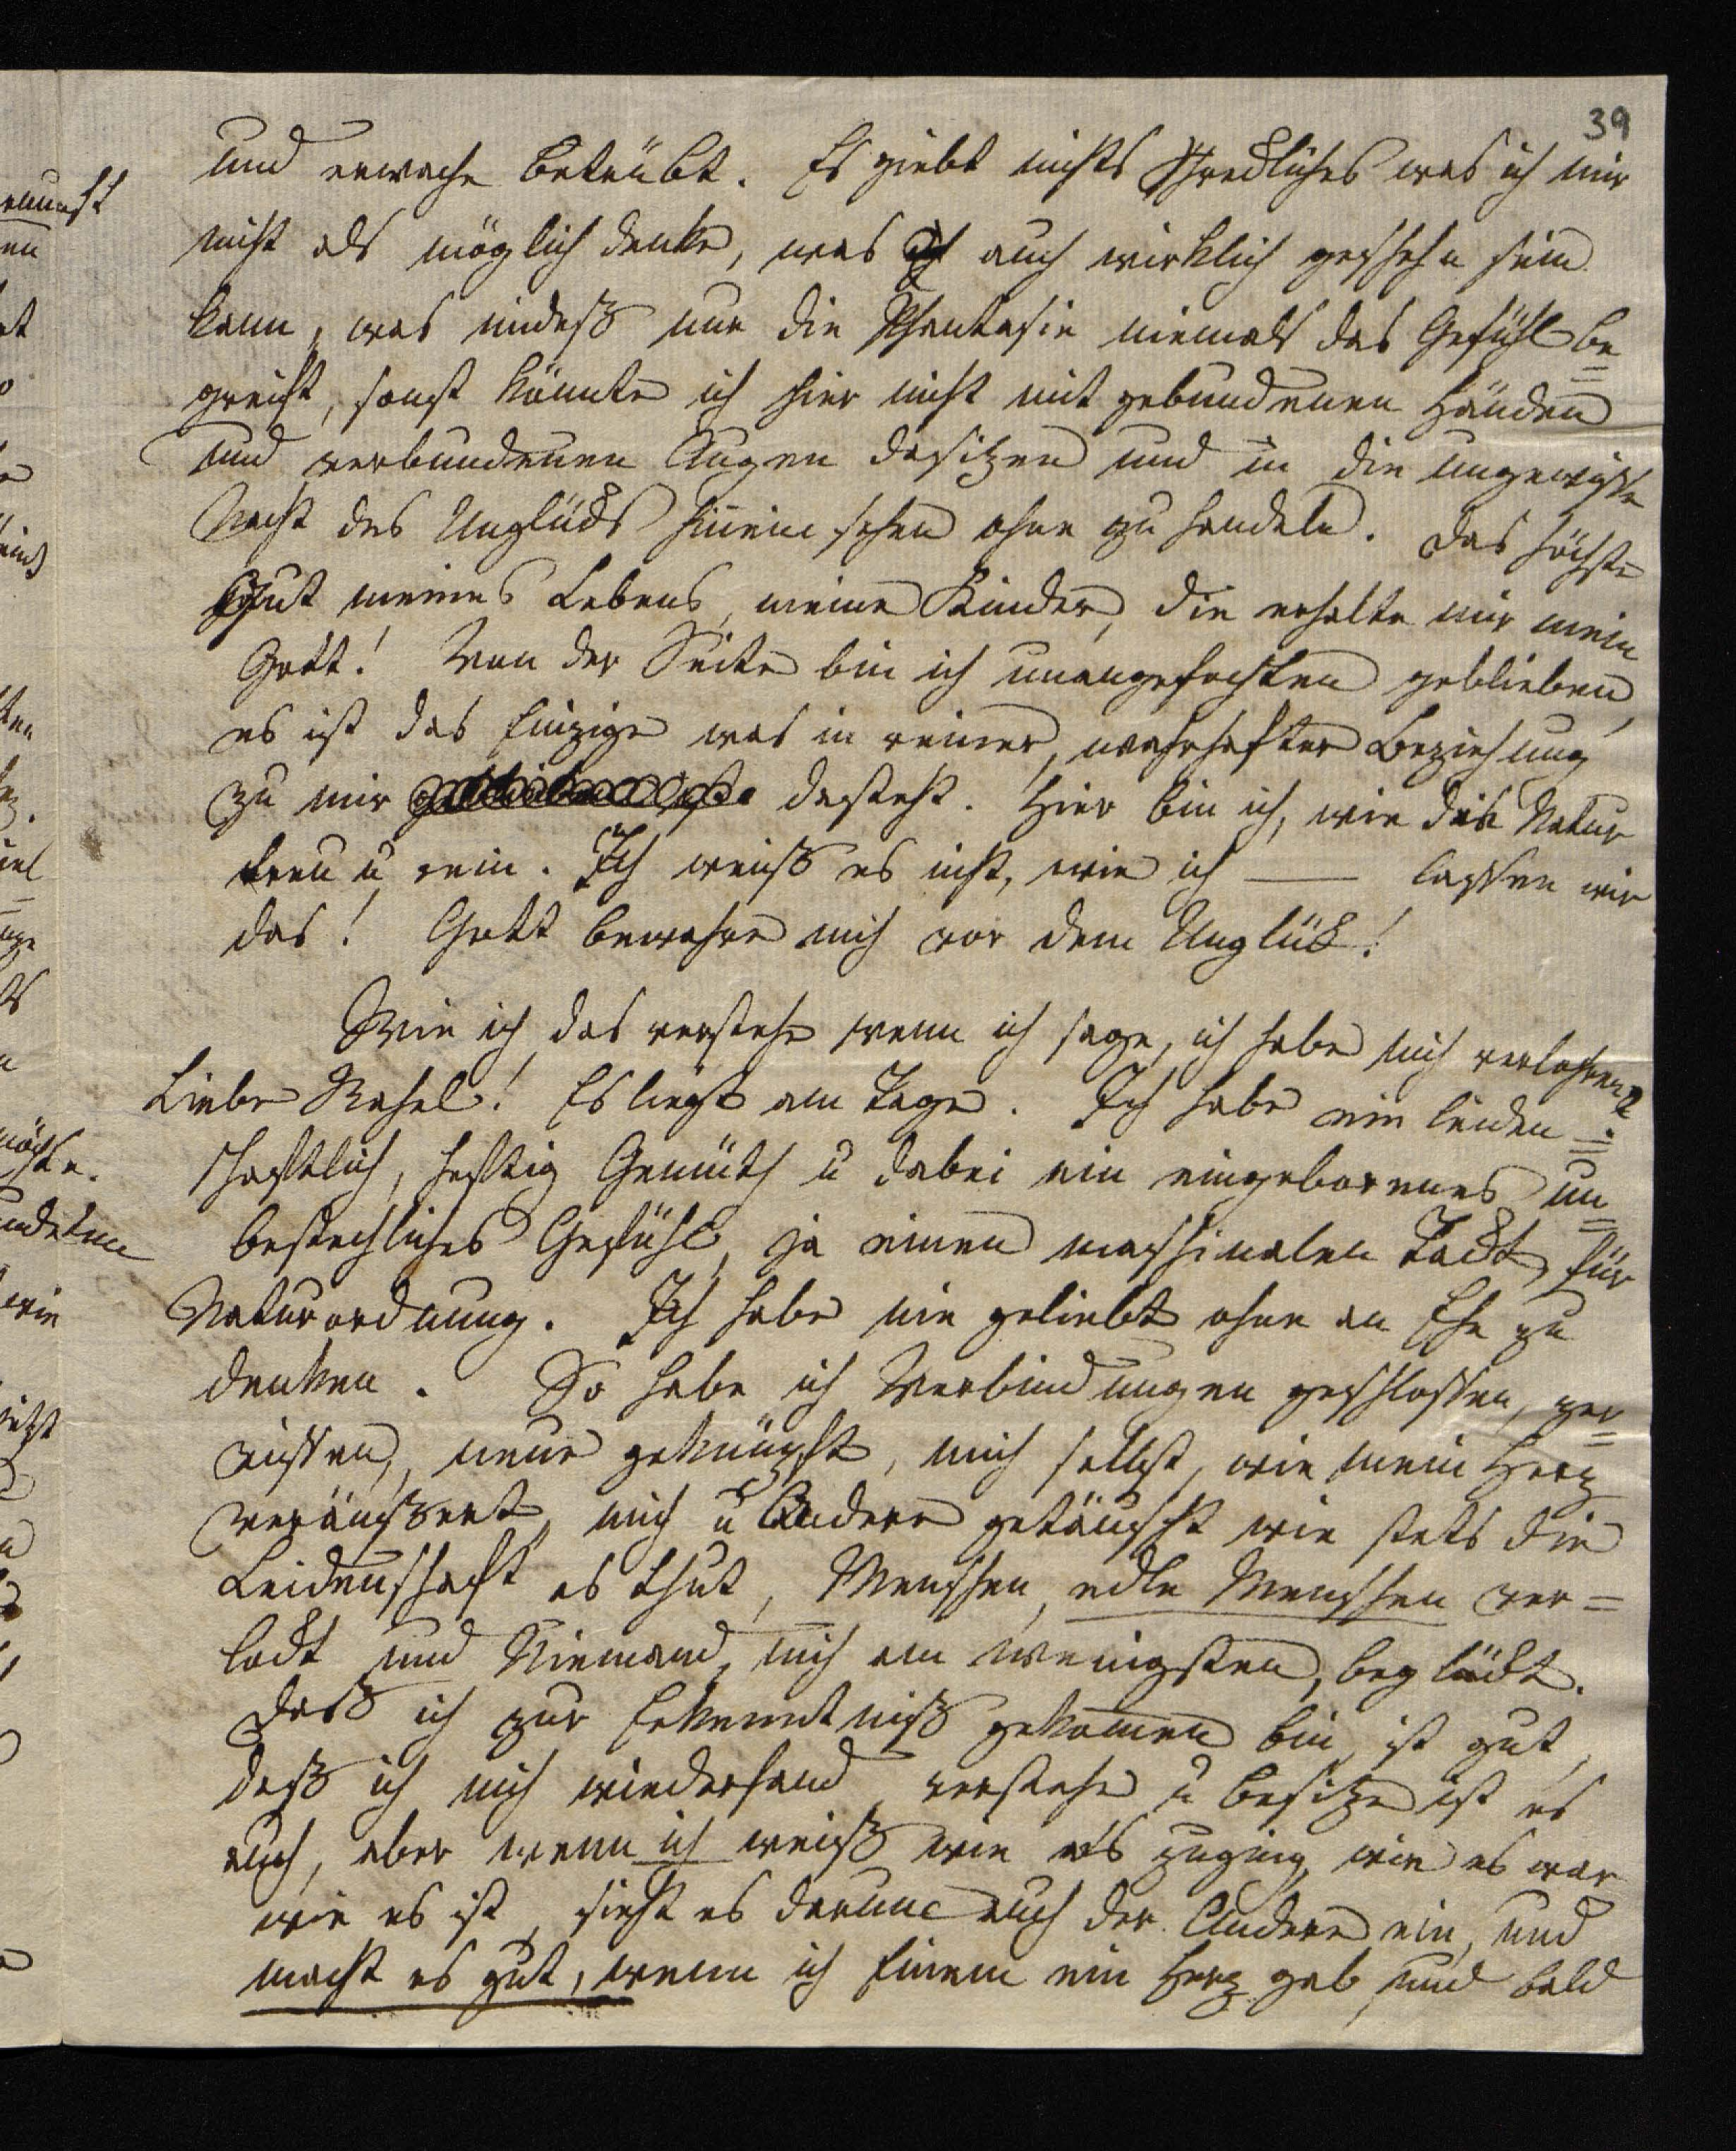 39
und erwache betrübt. Es giebt nichts Schreckliches was ich mir
nicht als möglich denke, was auch wirklich geschehn sein
kann, was indeß nur die Phantasie niemals das Gefühl be=
greift, sonst könnte ich hier nicht mit gebundenen Händen
und verbundenen Augen dasitzen und in die ungewisse
Nacht des Unglücks hinein sehen ohne zu handeln. Das höchste
Gut meines Lebens, meine Kinder, die erhalte mir mein
Gott! Von der Seite bin ich unangefochten geblieben,
es ist das Einzige was in reiner, wahrhafter Beziehung
zu mir dasteht. Hier bin ich, wie die Natur
treu u rein. Ich weiß es nicht, wie ich —— lassen wir
das! Gott bewahre mich vor dem Unglück!
Wie ich das verstehe wenn ich sage, ich habe mich verlohren?
Liebe Rahel! Es liegt am Tage. Ich habe ein leiden=
schaftlich, heftig Gemüth u dabei ein eingeborenes un=
bestechliches Gefühl, ja einen maschinalen Tackt für
Naturordnung. Ich habe nie geliebt ohne an Ehe zu
denken. So habe ich Verbindungen geschlossen, zer=
rissen, neue geknüpft, mich selbst, wie mein Herz
veräußert, mich u Andere getäuscht wie stets die
Leidenschaft es thut, Menschen, edle Menschen ver=
lockt und Niemand, mich am wenigsten, beglückt.
Daß ich zur Erkenntniß gekommen bin, ist gut,
daß ich mich wiederfand, verstehe u besitze ist es
auch, aber wenn ich weiß wie es zuging, wie es war
wie es ist, sieht es darum auch der Andere ein, und
macht es gut, wenn ich Einem ein Herz gab, und bald